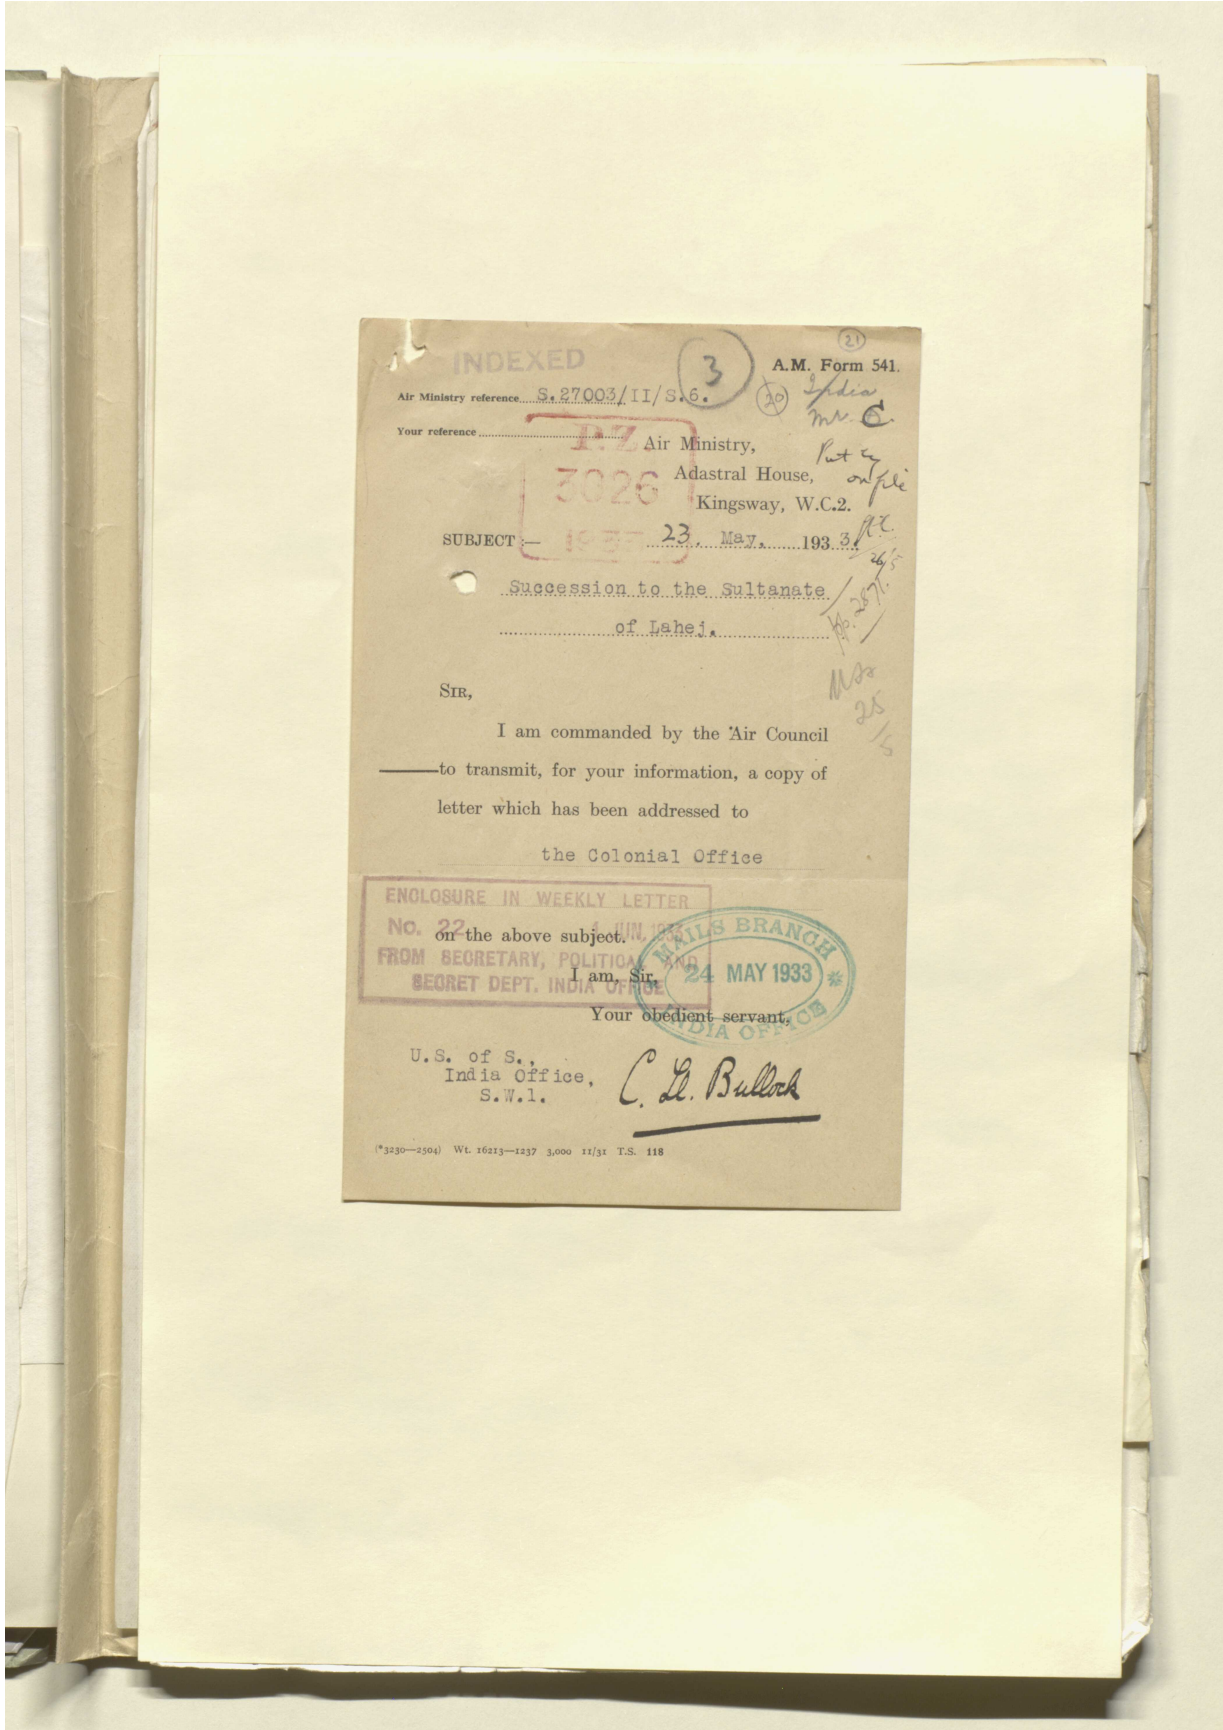 INDEXED
3
21
A.M. Form 541.
Air Ministry reference S.27003/II/S.6.
20
India
Mr. C.
Your reference
P.Z.
3026
1933
Air Ministry,
Adastral House,
Kingsway, W.C.2.
Put by
on file
SUBJECT :— 23. May. 1933.
26/5
Succession to the Sultanate
of Lahej.
25/5
SIR,
I am commanded by the Air Council
to transmit, for your information, a copy of
letter which has been addressed to
the Colonial Office
ENCLOSURE IN WEEKLY LETTER
No. 22 1 JUN. 1933
FROM SECRETARY, POLITICAL AND
SECRET DEPT. INDIA OFFICE
on the above subject.
MAILS BRANCH
24 MAY 1933
INDIA OFFICE
I am, Sir,
Your obedient servant,
U.S. of S.,
India Office,
S.W.1.
C. Ll. Bullock
(*3230—2504) Wt. 16213—1237 3,000 11/31 T.S. 118